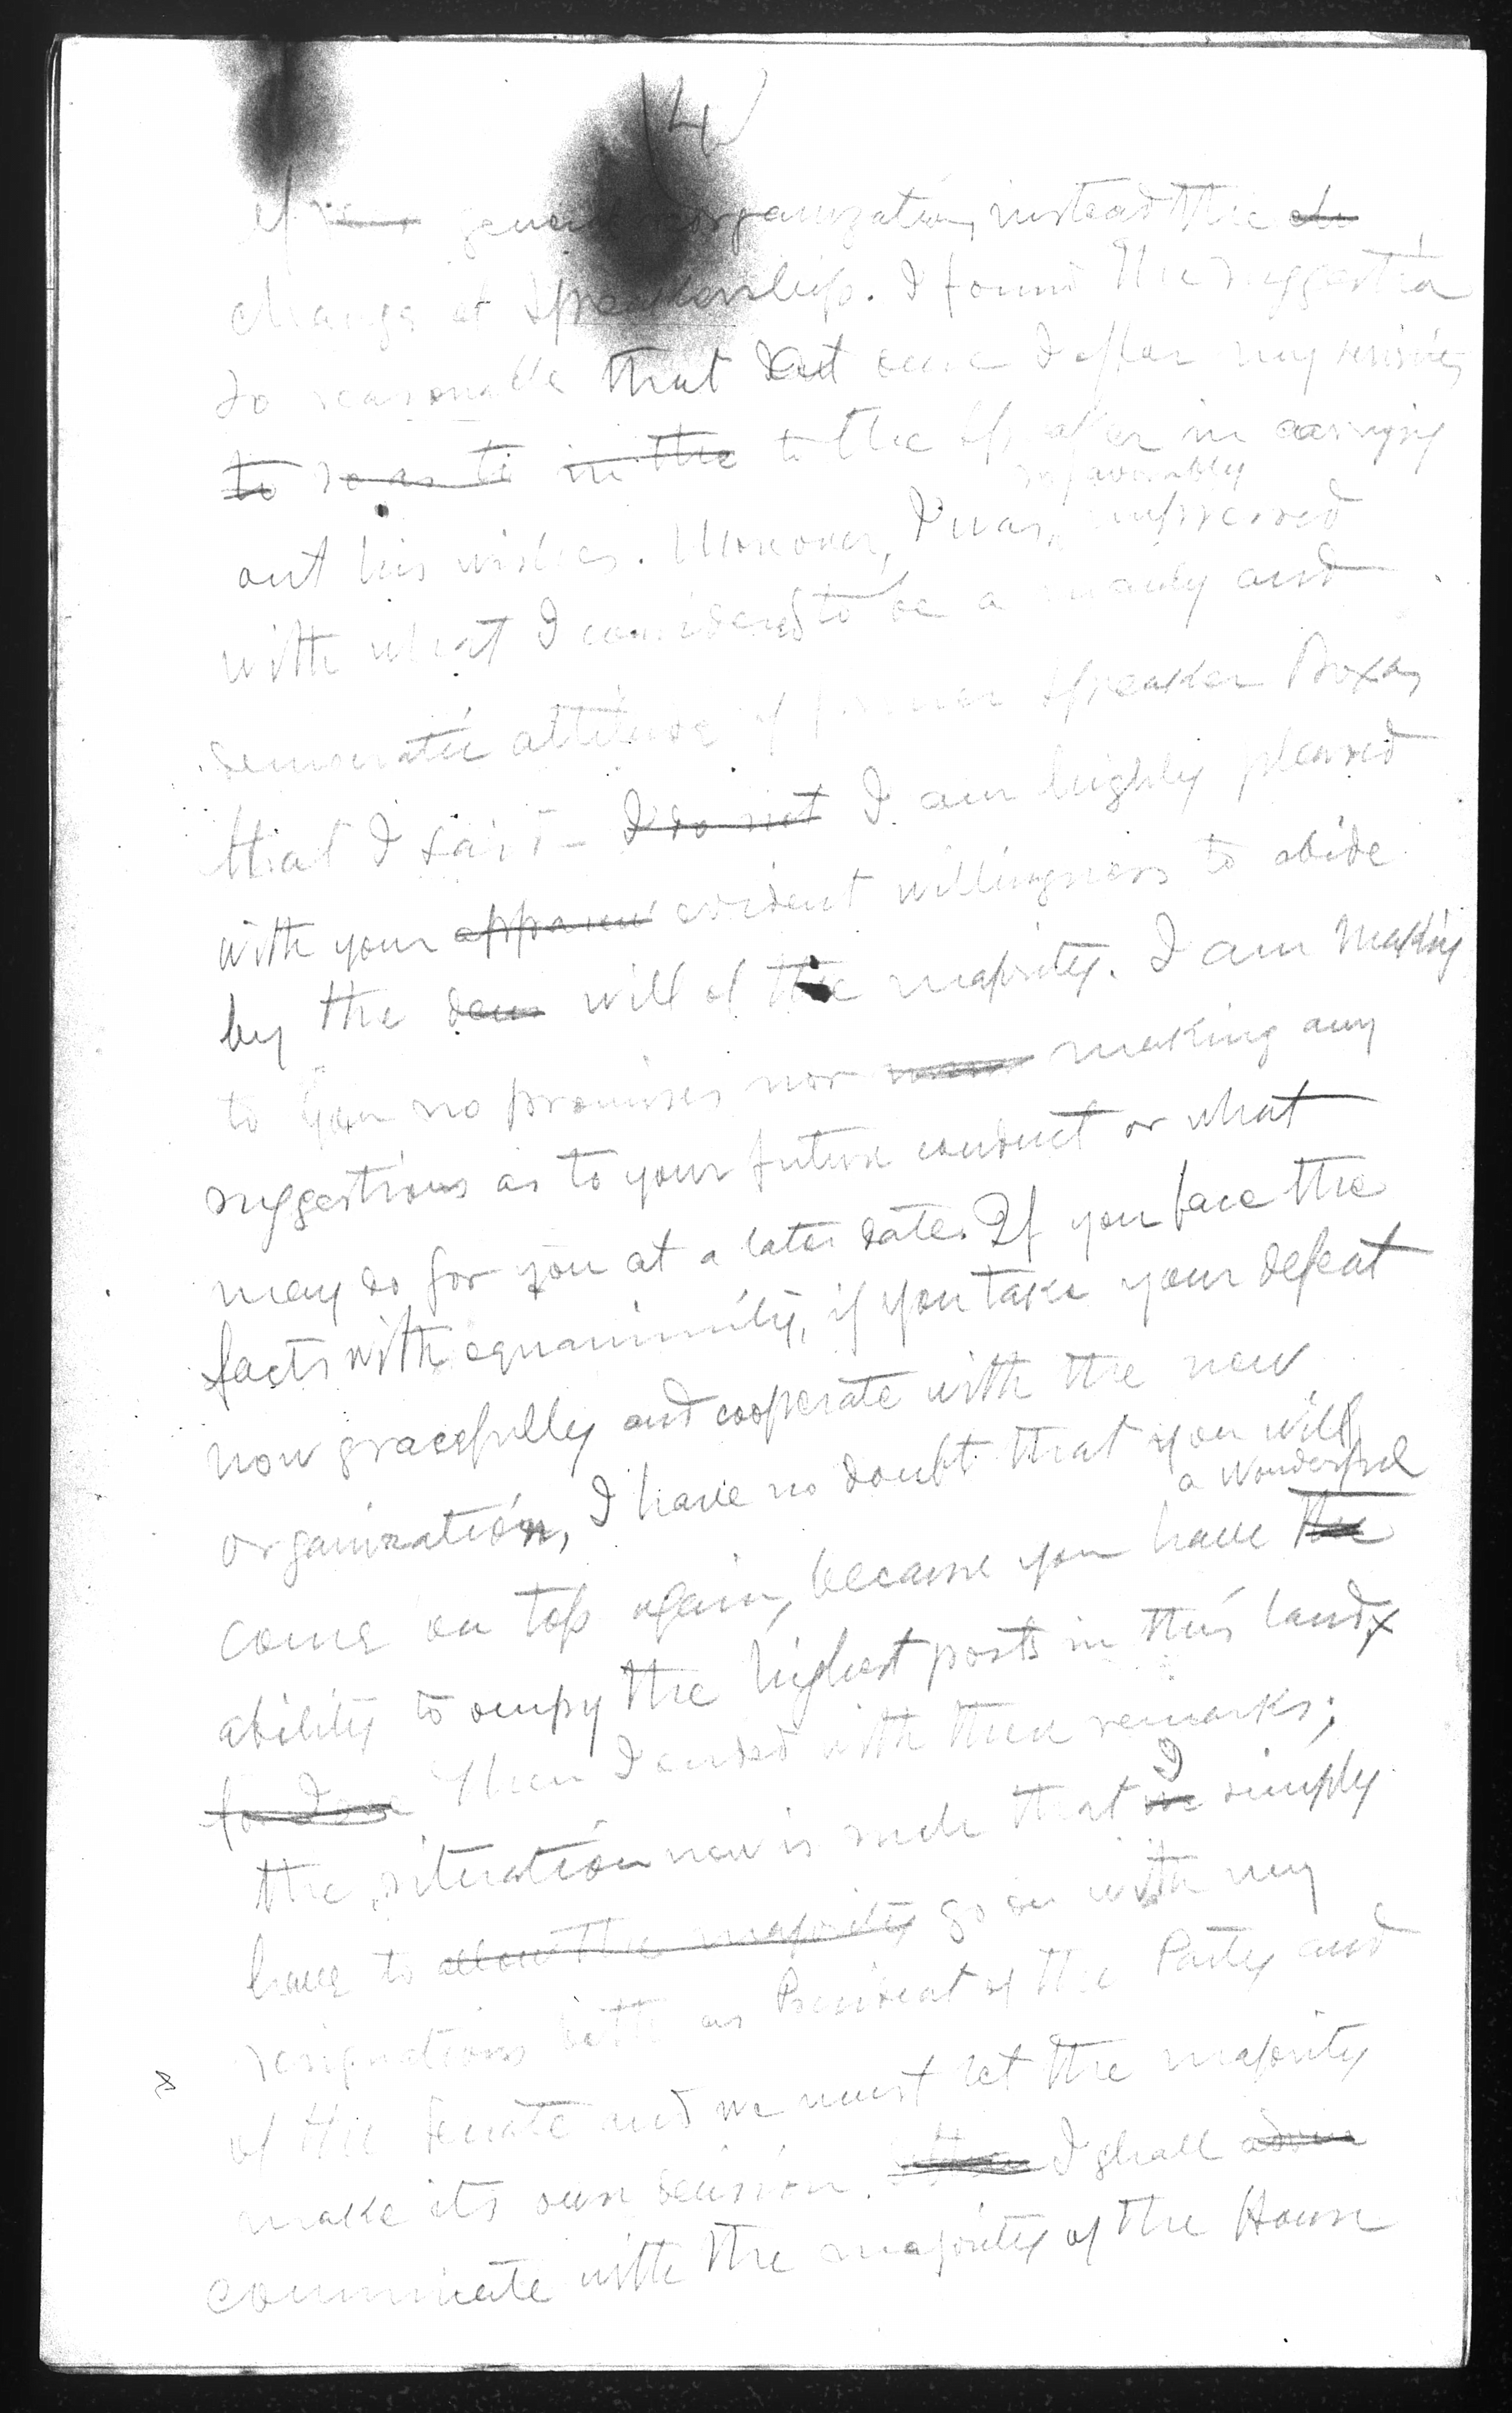 14
of general reorganization, instead the
change of Speakership. I found the suggestion
so reasonable that I at once I offer my services
to so as to in the to the Speaker in carrying
so favorably
out his wishes. Moreover, I was impressed
with what I considered to be a manly and
democratic attitude of former Speaker Roxas
that I said – I do not I am highly pleased
with your apparent evident willingness to abide
by the dem will of the majority. I am making
to you no promises nor making any
suggestions as to your future conduct or what
may do for you at a later date. If you face the
facts with equanimity, if you take your defeat
now gracefully and cooperate with the new
organization, I have no doubt that you will
a wonderful
come on top again, because you have the
ability to occupy the highest posts in this land
Then I ended with these remarks;
I
the situation now is such that we simply
have to allow the majority go on with my
resignations both as President of the Party and
of the Senate and we must let the majority
make its own decision. I shall
comunicate with the majority of the House